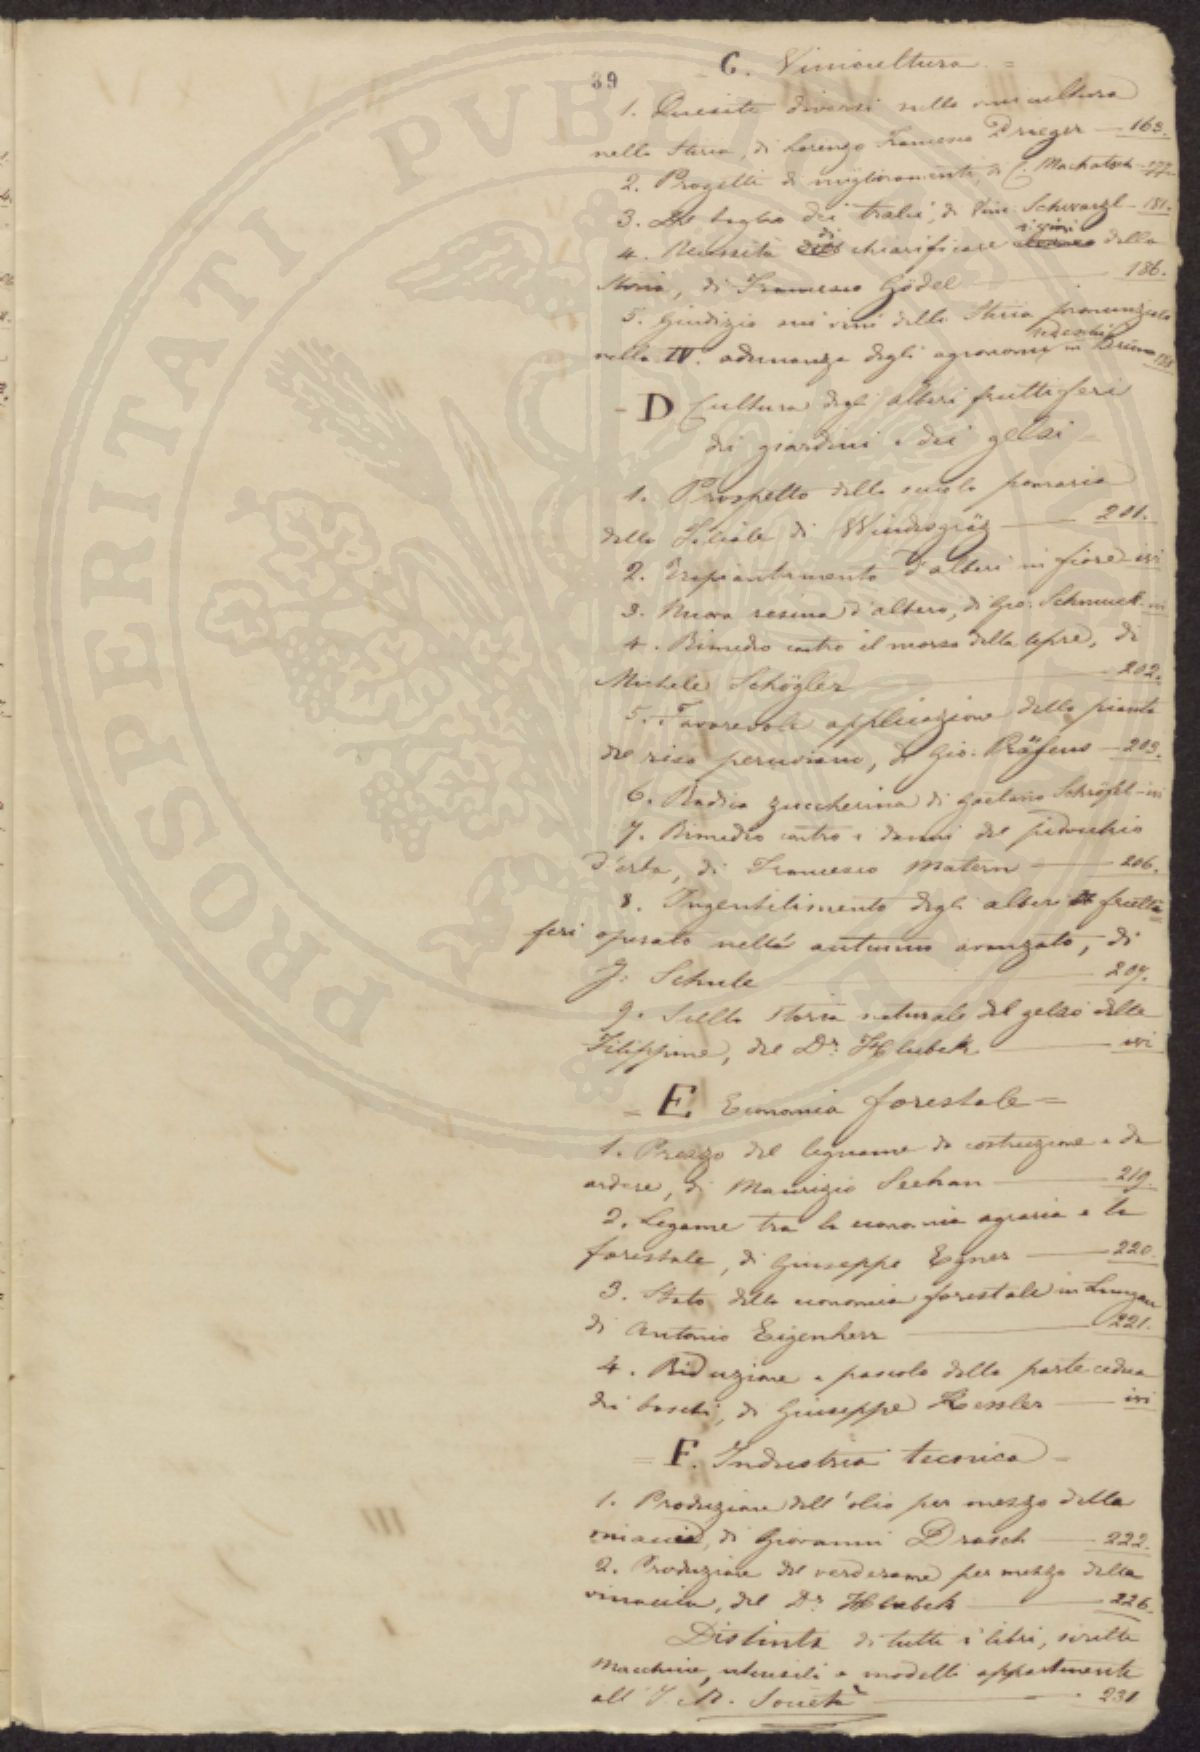 39
C. Vinicultura =
1. Quesiti diversi nella vinicultura
nella Stiria, di Lorenzo Francesco Prieger — 163.
2. Progetti di miglioramenti, di C. Machatsch — 177.
3. Del taglio dei tralci, di Vinc. Schwarzl — 181.
4. Necessità di chiarificare i vini della
Stiria, di Francesco Gödel — 186.
5. Giudizio sui vini della Stiria pronunziato
nella IV. adunanza degli agronomi tedeschi in Brünn 188
- D Cultura degli alberi fruttiferi
dei giardini e dei gelsi =
1. Prospetto della scuola pomaria
della Filiale di Windisgräz — 201.
2. Trapiantamento d'alberi in fiore — ivi
3. Nuova resina d'albero, di Gio: Schmuck — ivi
4. Rimedio contro il morso della lepre, di
Michele Schögler — 202.
5. Favorevole applicazione della pianta
del riso peruviano, di Gio: Präfcus — 203.
6. Radice zuccherina di Gaetano Schröfel — ivi
7. Rimedio contro i danni del pidocchio
d'erba, di Francesco Matern — 206.
8. Ingentilimento degli alberi frutti=
feri operato nell' autunno avanzato, di
J: Schule — 207.
9. Sulla storia naturale del gelso delle
Filippine, del Dr. Hlubek — ivi
= E Economia forestale =
1. Prezzo del legname da costruzione e da
ardere, di Maurizio Seehan — 219.
2. Legame tra la economia agraria e la
forestale, di Giuseppe Egner — 220.
3. Stato della economia forestale in Lungau
di Antonio Eigenherr — 221.
4. Riduzione a pascolo della parte cedua
dei boschi, di Giuseppe Kessler — ivi
= F. Industria tecnica =
1. Produzione dell'olio per mezzo della
di Giovanni Drasch — 222.
2. Produzione del verderame per mezzo della
vinaccia, del Dr. Hlubek — 226.
Distinta di tutti i libri, scritti
Macchine, utensili e modelli appartenenti
all' I. R. Società — 231